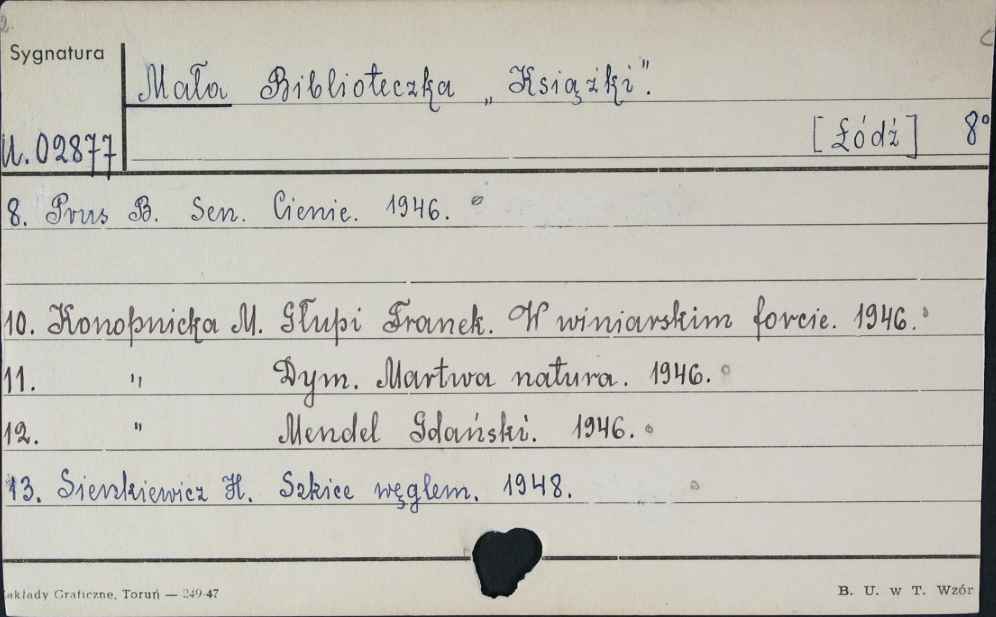 2.
Sygnatura
Mała Biblioteczka „Książki".
[Łódź] 8°
U.02877
8. Prus B. Sen. Cienie. 1946.
10. Konopnicka M. Głupi Franek. W winiarskim forcie. 1946.
11. " Dym. Martwa natura. 1946.
12. " Mendel Gdański. 1946.
13. Sienkiewicz H. Szkice węglem. 1948.
Zakłady Graficzne, Toruń — 249-47
B. U. w T. Wzór